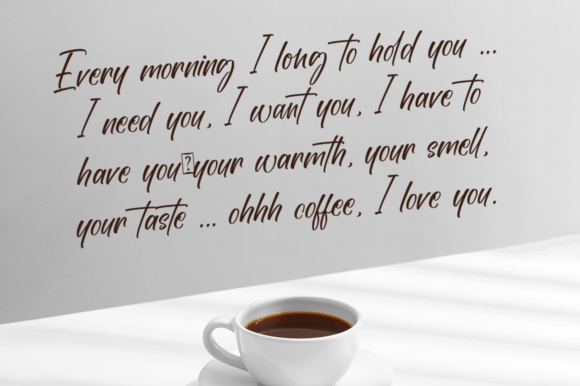 Every morning I long to hold you ...
I need you, I want you, I have to
have you�your warmth, your smell,
your taste ... ohhh coffee, I love you.